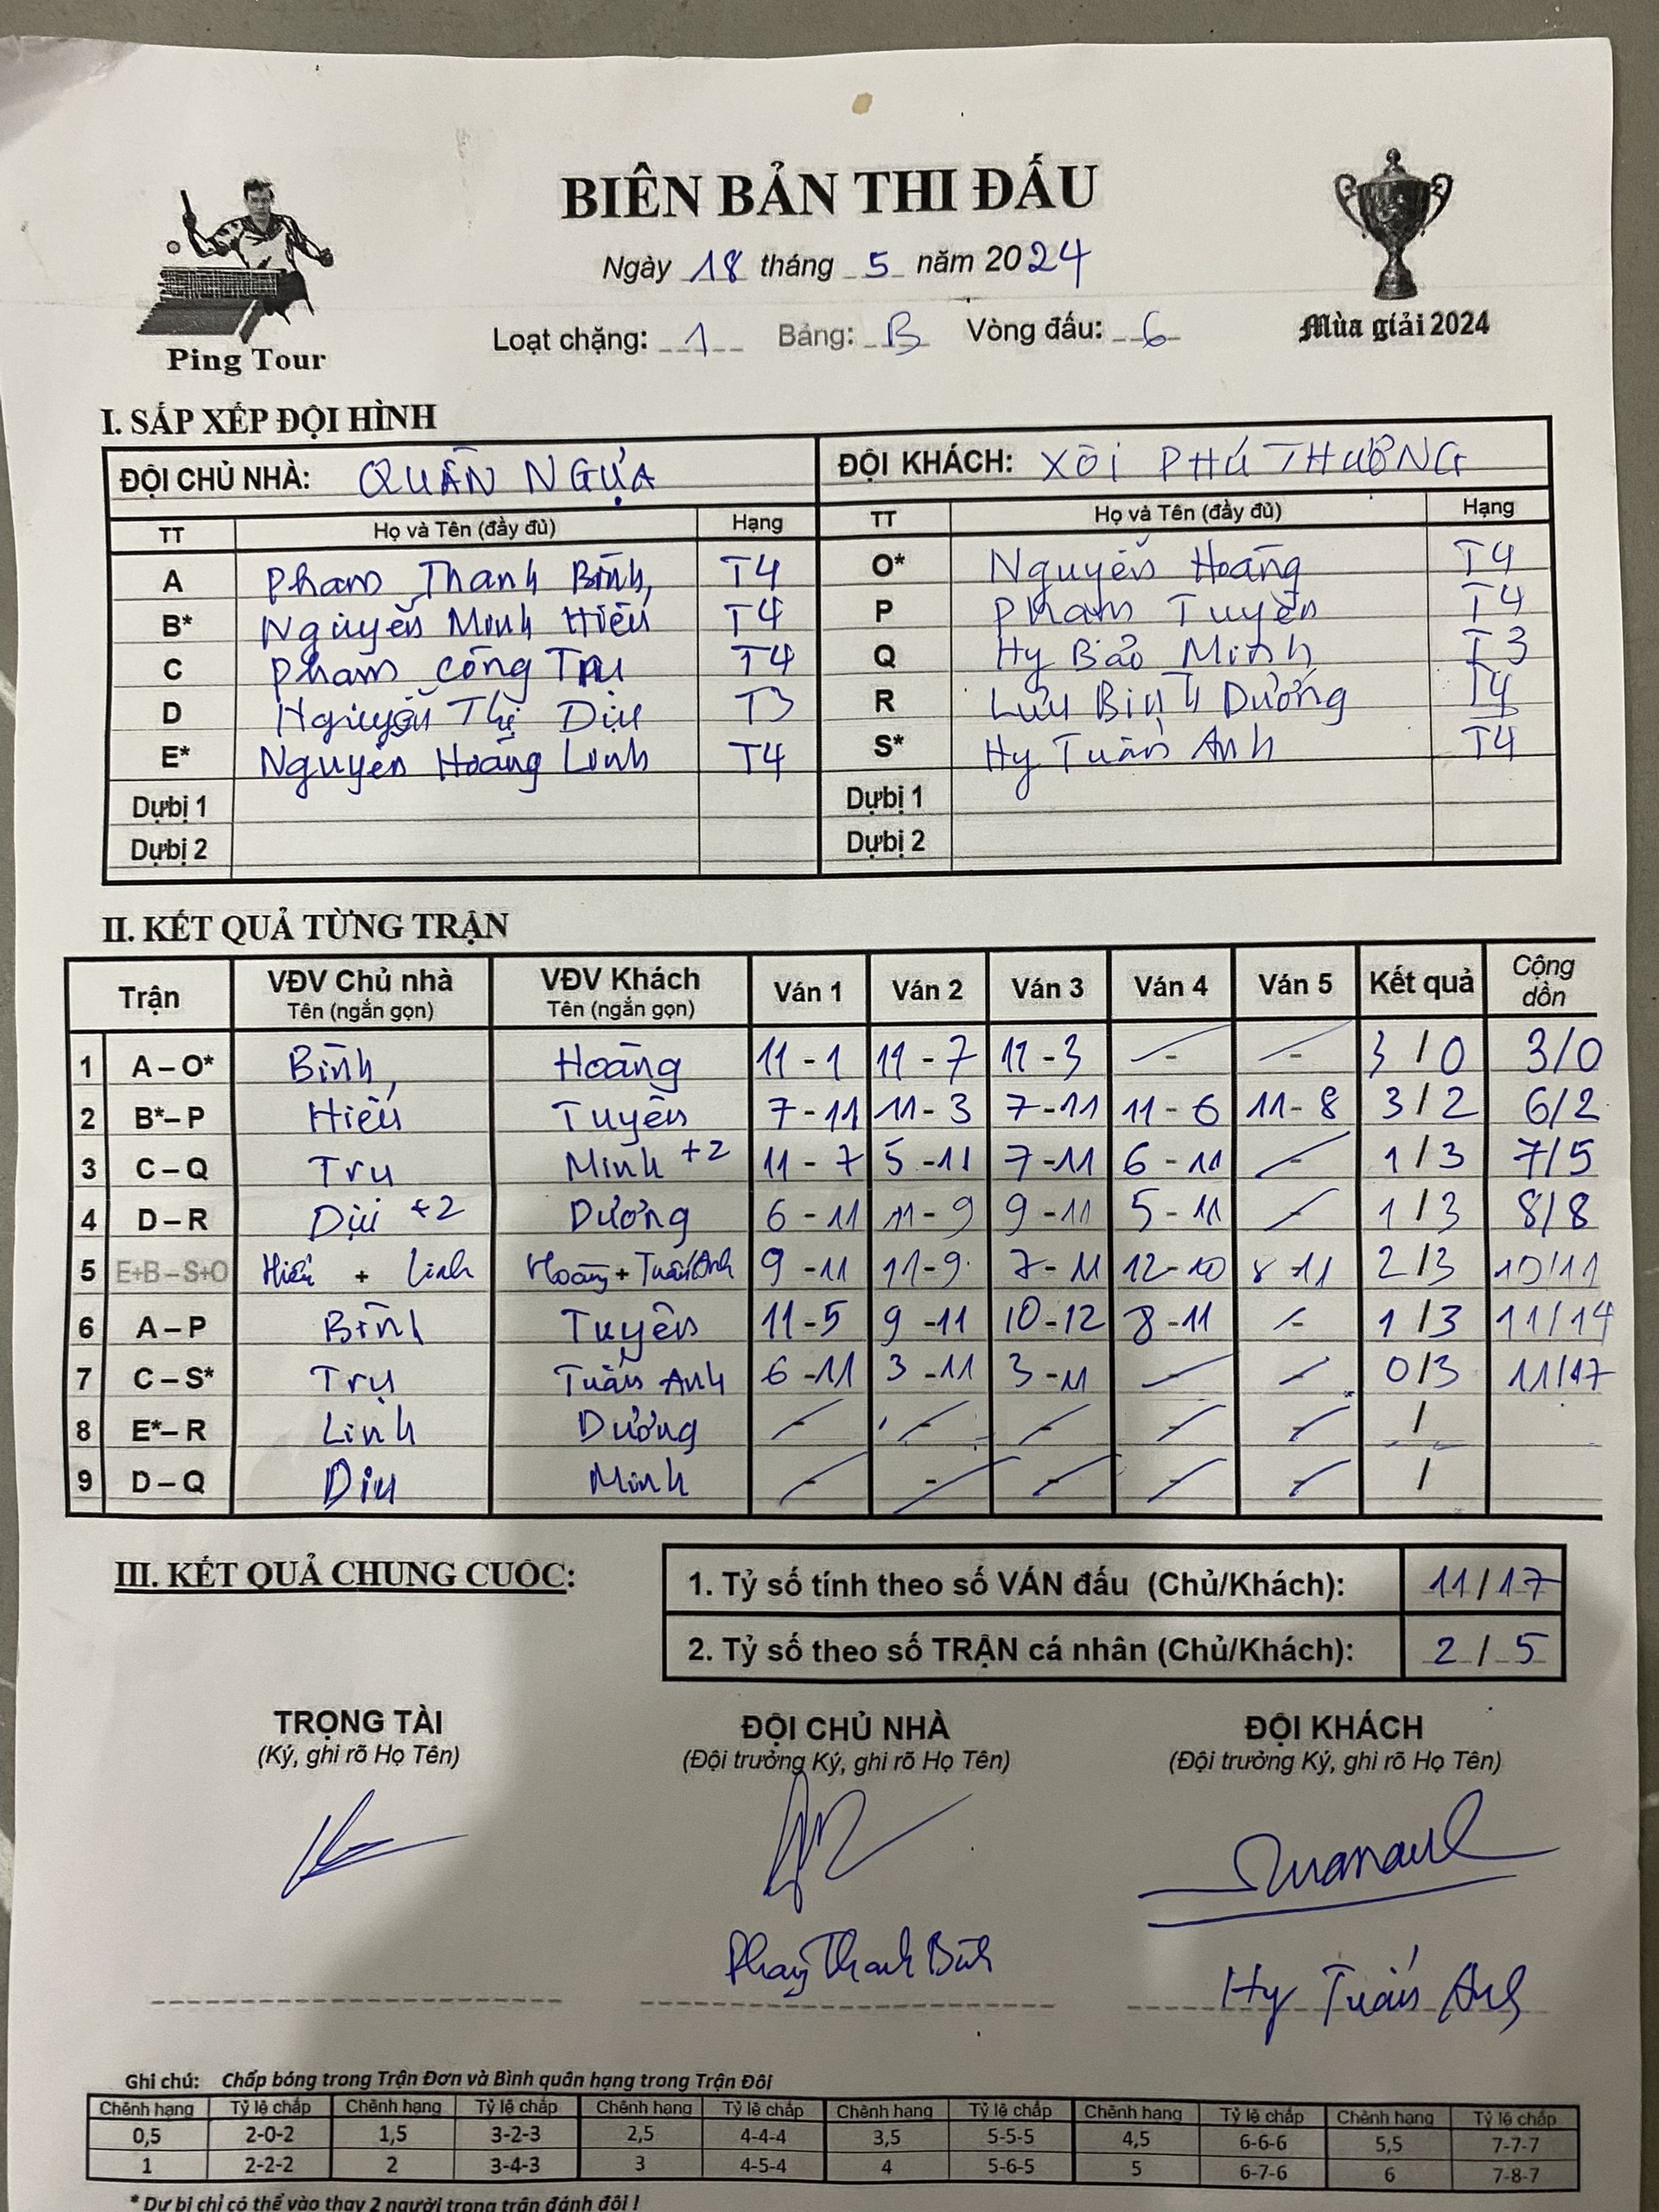 BIÊN BẢN THI ĐẤU
Ngày 18 tháng 5 năm 2024
Loạt chặng: 1 Bảng: B Vòng đấu: 6
Ping Tour
Mùa giải 2024
I. SẮP XẾP ĐỘI HÌNH
ĐỘI CHỦ NHÀ: QUẦN NGỰA ĐỘI KHÁCH: XÔI PHÚ THƯỢNG
TT Họ và Tên (đầy đủ) Hạng TT Họ và Tên (đầy đủ) Hạng
A Phạm Thanh Bình T4 O* Nguyễn Hoàng T4
B* Nguyễn Minh Hiếu T4 P Phạm Tuyên T4
C Phạm Công Trụ T4 Q Hy Bảo Minh T3
D Nguyễn Thị Dịu T3 R Lưu Bình Dương T4
E* Nguyễn Hoàng Linh T4 S* Hy Tuấn Anh T4
Dự bị 1 Dự bị 1
Dự bị 2 Dự bị 2
II. KẾT QUẢ TỪNG TRẬN
Trận VĐV Chủ nhà VĐV Khách Ván 1 Ván 2 Ván 3 Ván 4 Ván 5 Kết quả Cộng dồn
Tên (ngắn gọn) Tên (ngắn gọn)
1 A – O* Bình Hoàng 11 - 1 11 - 7 11 - 3 - - 3 / 0 3/0
2 B* – P Hiếu Tuyên 7 - 11 11 - 3 7 - 11 11 - 6 11 - 8 3 / 2 6/2
3 C – Q Trụ Minh +2 11 - 7 5 - 11 7 - 11 6 - 11 - 1 / 3 7/5
4 D – R Dịu +2 Dương 6 - 11 11 - 9 9 - 11 5 - 11 - 1 / 3 8/8
5 E+B – S+O Hiếu + Linh Hoàng + Tuấn Anh 9 - 11 11 - 9 7 - 11 12 - 10 8 - 11 2 / 3 10/11
6 A – P Bình Tuyên 11 - 5 9 - 11 10 - 12 8 - 11 - 1 / 3 11/14
7 C – S* Trụ Tuấn Anh 6 - 11 3 - 11 3 - 11 - - 0 / 3 11/17
8 E* – R Linh Dương - - - - - /
9 D – Q Dịu Minh - - - - - /
III. KẾT QUẢ CHUNG CUỘC:
1. Tỷ số tính theo số VÁN đấu (Chủ/Khách): 11 / 17
2. Tỷ số theo số TRẬN cá nhân (Chủ/Khách): 2 / 5
TRỌNG TÀI ĐỘI CHỦ NHÀ ĐỘI KHÁCH
(Ký, ghi rõ Họ Tên) (Đội trưởng Ký, ghi rõ Họ Tên) (Đội trưởng Ký, ghi rõ Họ Tên)
Phạm Thanh Bình Hy Tuấn Anh
Ghi chú: Chấp bóng trong Trận Đơn và Bình quân hạng trong Trận Đôi
Chênh hạng Tỷ lệ chấp Chênh hạng Tỷ lệ chấp Chênh hạng Tỷ lệ chấp Chênh hạng Tỷ lệ chấp Chênh hạng Tỷ lệ chấp Chênh hạng Tỷ lệ chấp
0,5 2-0-2 1,5 3-2-3 2,5 4-4-4 3,5 5-5-5 4,5 6-6-6 5,5 7-7-7
1 2-2-2 2 3-4-3 3 4-5-4 4 5-6-5 5 6-7-6 6 7-8-7
* Dự bị chỉ có thể vào thay 2 người trong trận đánh đôi !